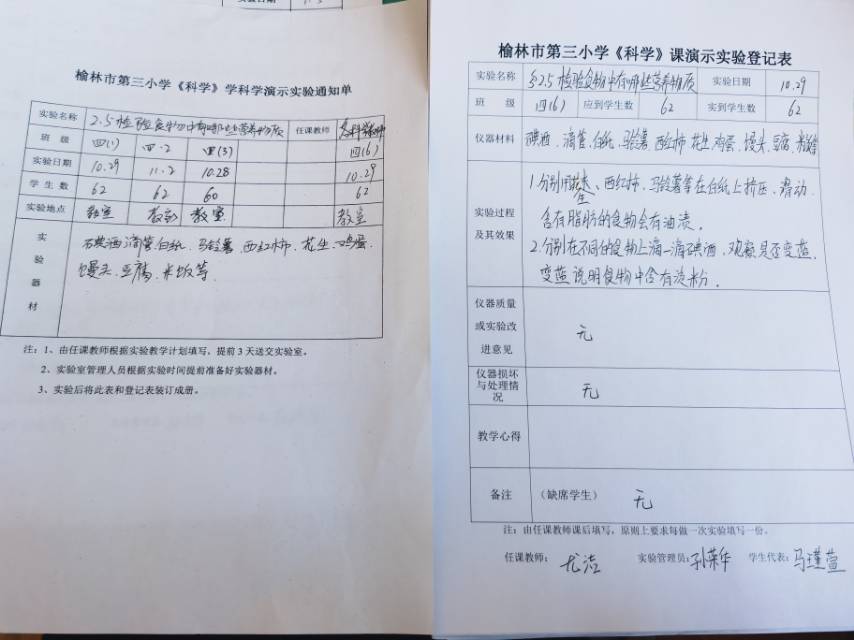 实验日期
榆林市第三小学《科学》学科学演示实验通知单
实验名称 2.5检验食物中有哪些营养物质 任课教师
班 级 四(1) 四·2 四(3) 四(6)
实验日期 10.29 11.2 10.28 10.29
学 生 数 62 62 60 62
实验地点 教室 教室 教室 教室
实验器材
碘酒、滴管、白纸、马铃薯、西红柿、花生、鸡蛋、
馒头、豆腐、米饭等
注：1、由任课教师根据实验教学计划填写，提前3天送交实验室。
2、实验室管理人员根据实验时间提前准备好实验器材。
3、实验后将此表和登记表装订成册。
榆林市第三小学《科学》课演示实验登记表
实验名称 §2.5检验食物中有哪些营养物质 实验日期 10.29
班 级 四(6) 应到学生数 62 实到学生数 62
仪器材料 碘酒、滴管、白纸、马铃薯、西红柿、花生、鸡蛋、馒头、豆腐、米饭等
实验过程
及其效果
1.分别用花生、西红柿、马铃薯等在白纸上挤压、滑动.
含有脂肪的食物会有油渍.
2.分别在不同的食物上滴一滴碘酒，观察是否变蓝.
变蓝说明食物中含有淀粉.
仪器质量
或实验改
进意见
无
仪器损坏
与处理情
况
无
教学心得
备注 （缺席学生） 无
注：由任课教师课后填写，原则上要求每做一次实验填写一份。
任课教师： 尤洁 实验管理员：孙荣华 学生代表：马瑾萱